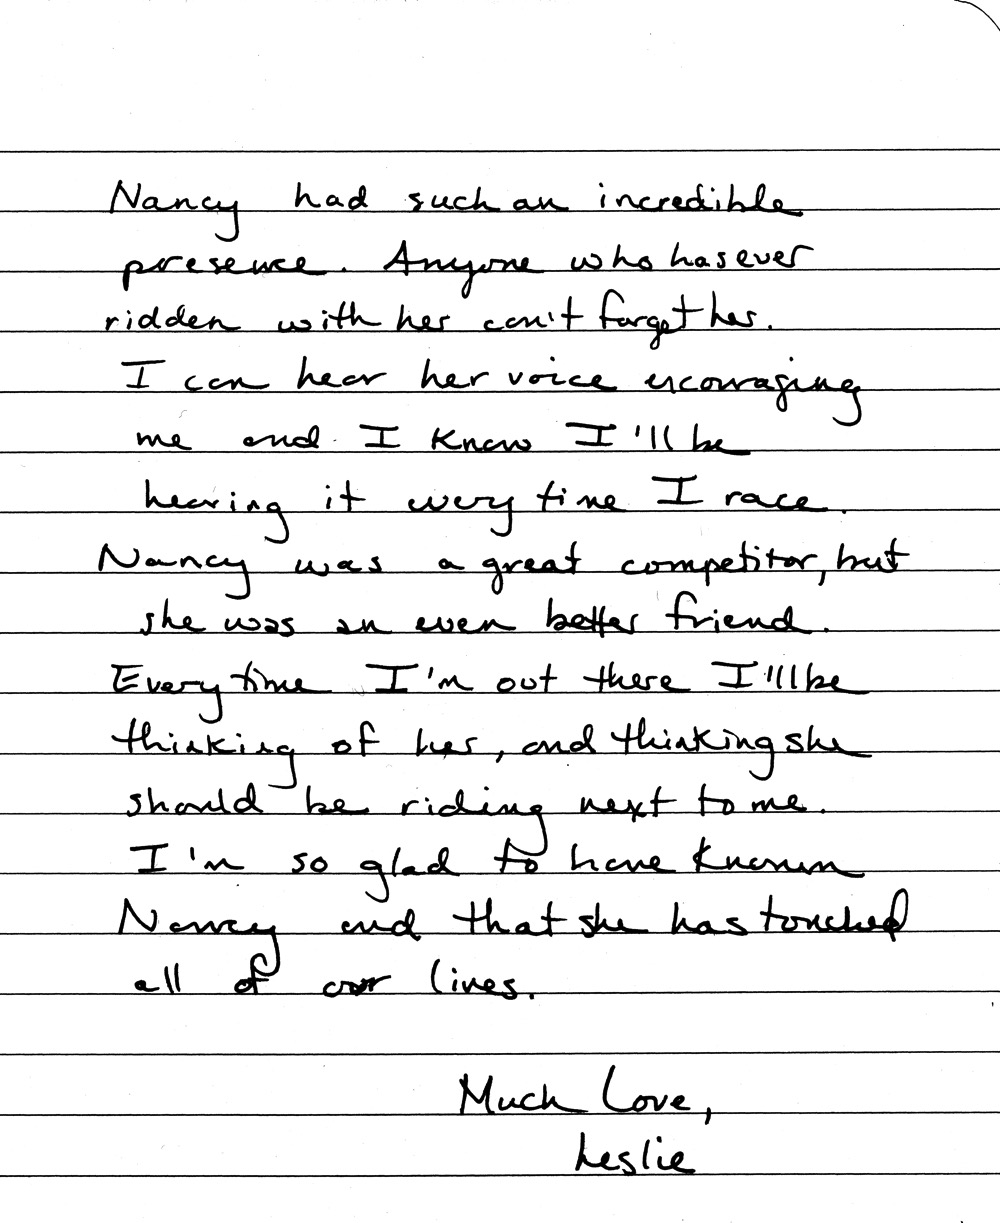 Nancy had such an incredible
presence. Anyone who has ever
ridden with her can't forget her.
I can hear her voice encouraging
me and I know I'll be
hearing it every time I race.
Nancy was a great competitor, but
she was an even better friend.
Every time I'm out there I'll be
thinking of her, and thinking she
should be riding next to me.
I'm so glad to have known
Nancy and that she has touched
all of our lives.
Much Love,
Leslie